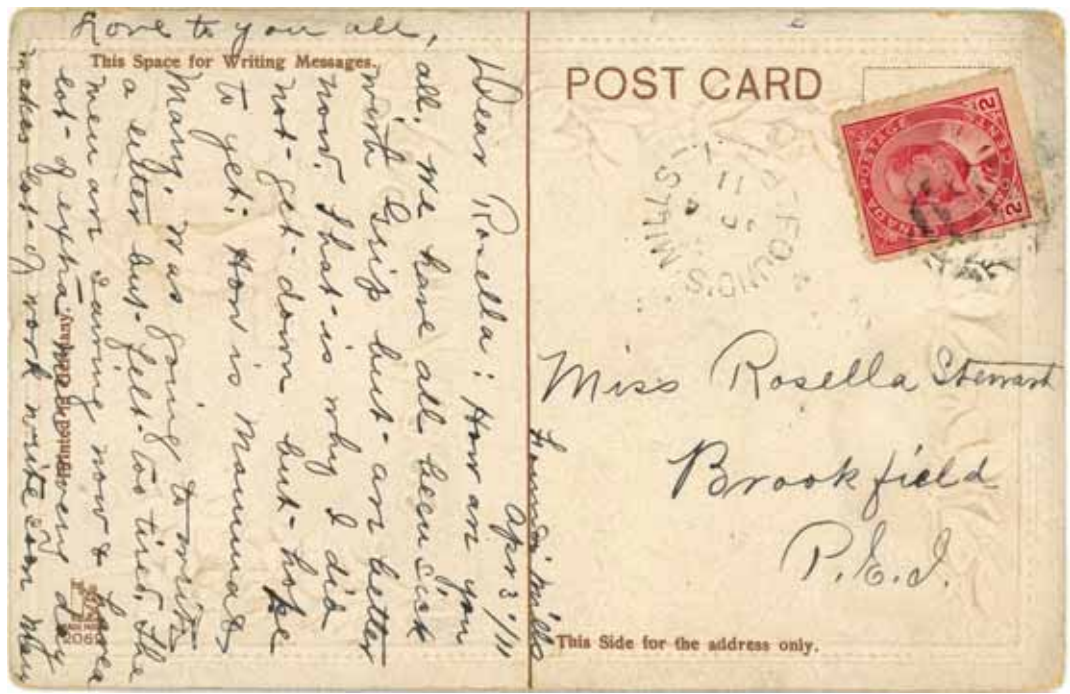 Love to you all,
This Space for Writing Messages.
Founds Mills
Apr 3'/11
Dear Rosella: How are you
all. We have all been sick
with Grip but are better
now. That is why I did
not get down but hope
to yet. How is Mamma &
Mary. Was going to write
a letter but felt too tired. The
men are sawing now & have a
lot of extra men every day
makes lot of work write soon May
Printed in Germany.
2069
POST CARD
FOUND'S MILLS
P.E.I.
AP 3
11
CANADA POSTAGE
2 TWO CENTS 2
Miss Rosella Stewart
Brookfield
P.E.I.
This Side for the address only.